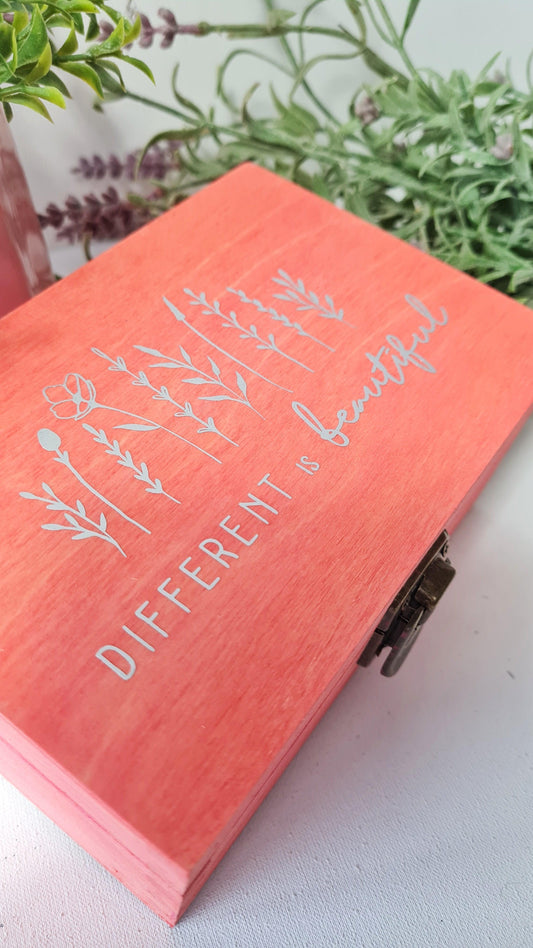 DIFFERENT IS beautiful